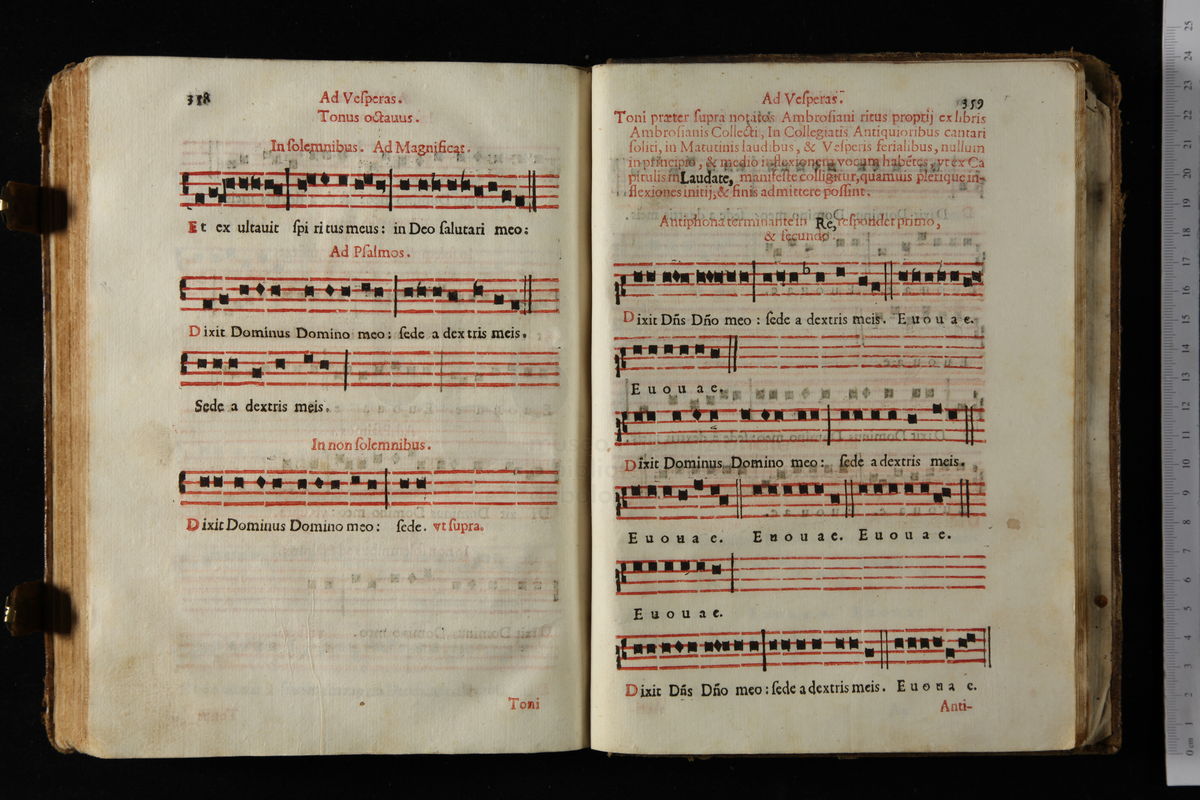 338
Ad Veſperas.
Tonus octauus.
In ſolemnibus. Ad Magnificat.
Et ex ultauit ſpi ri tus meus: in Deo ſalutari meo:
Ad Pſalmos.
Dixit Dominus Domino meo: ſede a dex tris meis.
Sede a dextris meis.
In non ſolemnibus.
Dixit Dominus Domino meo: ſede. vt ſupra.
Toni
Ad Veſperas.
359
Toni præter ſupra notatos Ambroſiani ritus proptij ex libris
Ambroſianis Collecti, In Collegiatis Antiquioribus cantari
ſoliti, in Matutinis laudibus, & Veſperis ferialibus, nullum
in principio, & medio inflexionem vocum habẽtes, vt ex Ca
pitulis in Laudate, manifeſte colligitur, quamuis plerique in-
flexiones initij, & finis admittere poſſint.
Antiphona terminante in Re, reſpondet primo,
& ſecundo
Dixit Dñs Dño meo: ſede a dextris meis. E u o u a e.
E u o u a e.
Dixit Dominus Domino meo: ſede a dextris meis.
E u o u a e. E u o u a e. E u o u a e.
E u o u a e.
Dixit Dñs Dño meo: ſede a dextris meis. E u o u a e.
Anti-